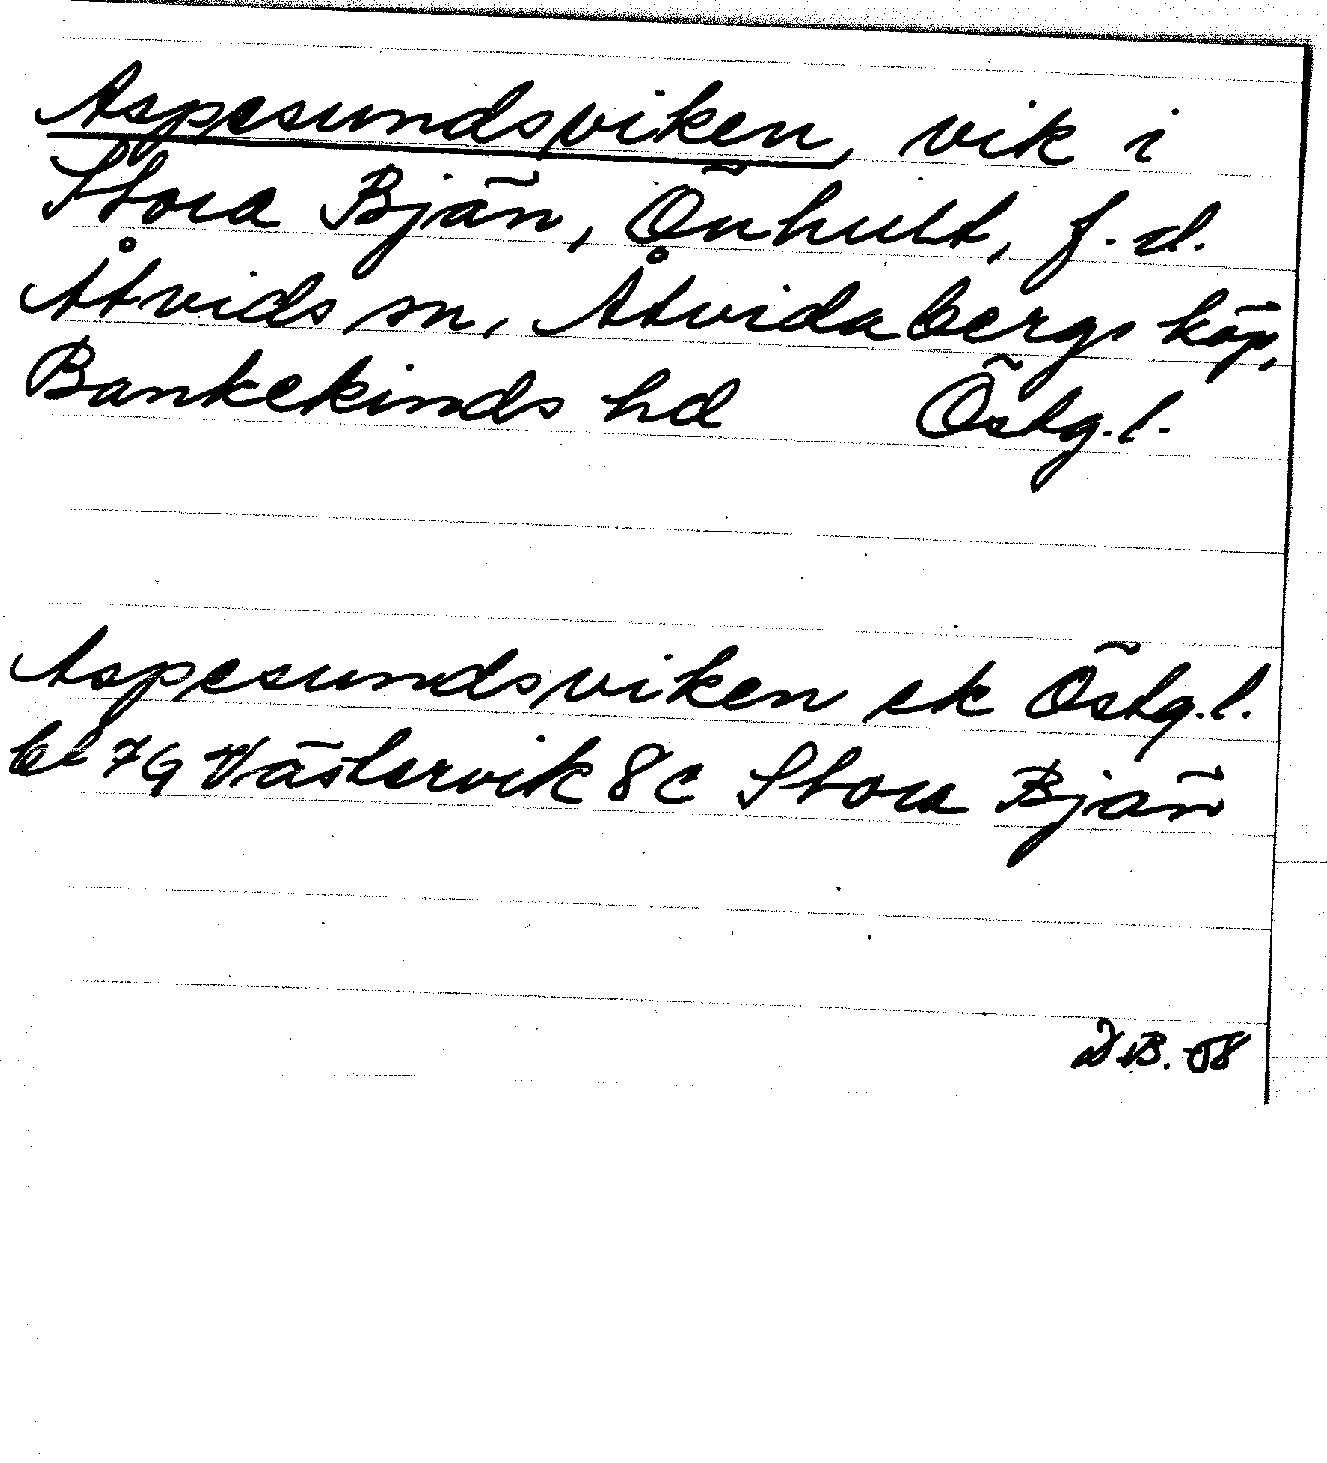 Aspesundsviken, vik i
Stora Bjän, Önhult, f.d.
Åtvids sn, Åtvidabergs köp,
Bankekinds hd Östg.l.
Aspesundsviken ek Östg.l.
bl 7G Västervik 8c Stora Bjän
D.B. -58